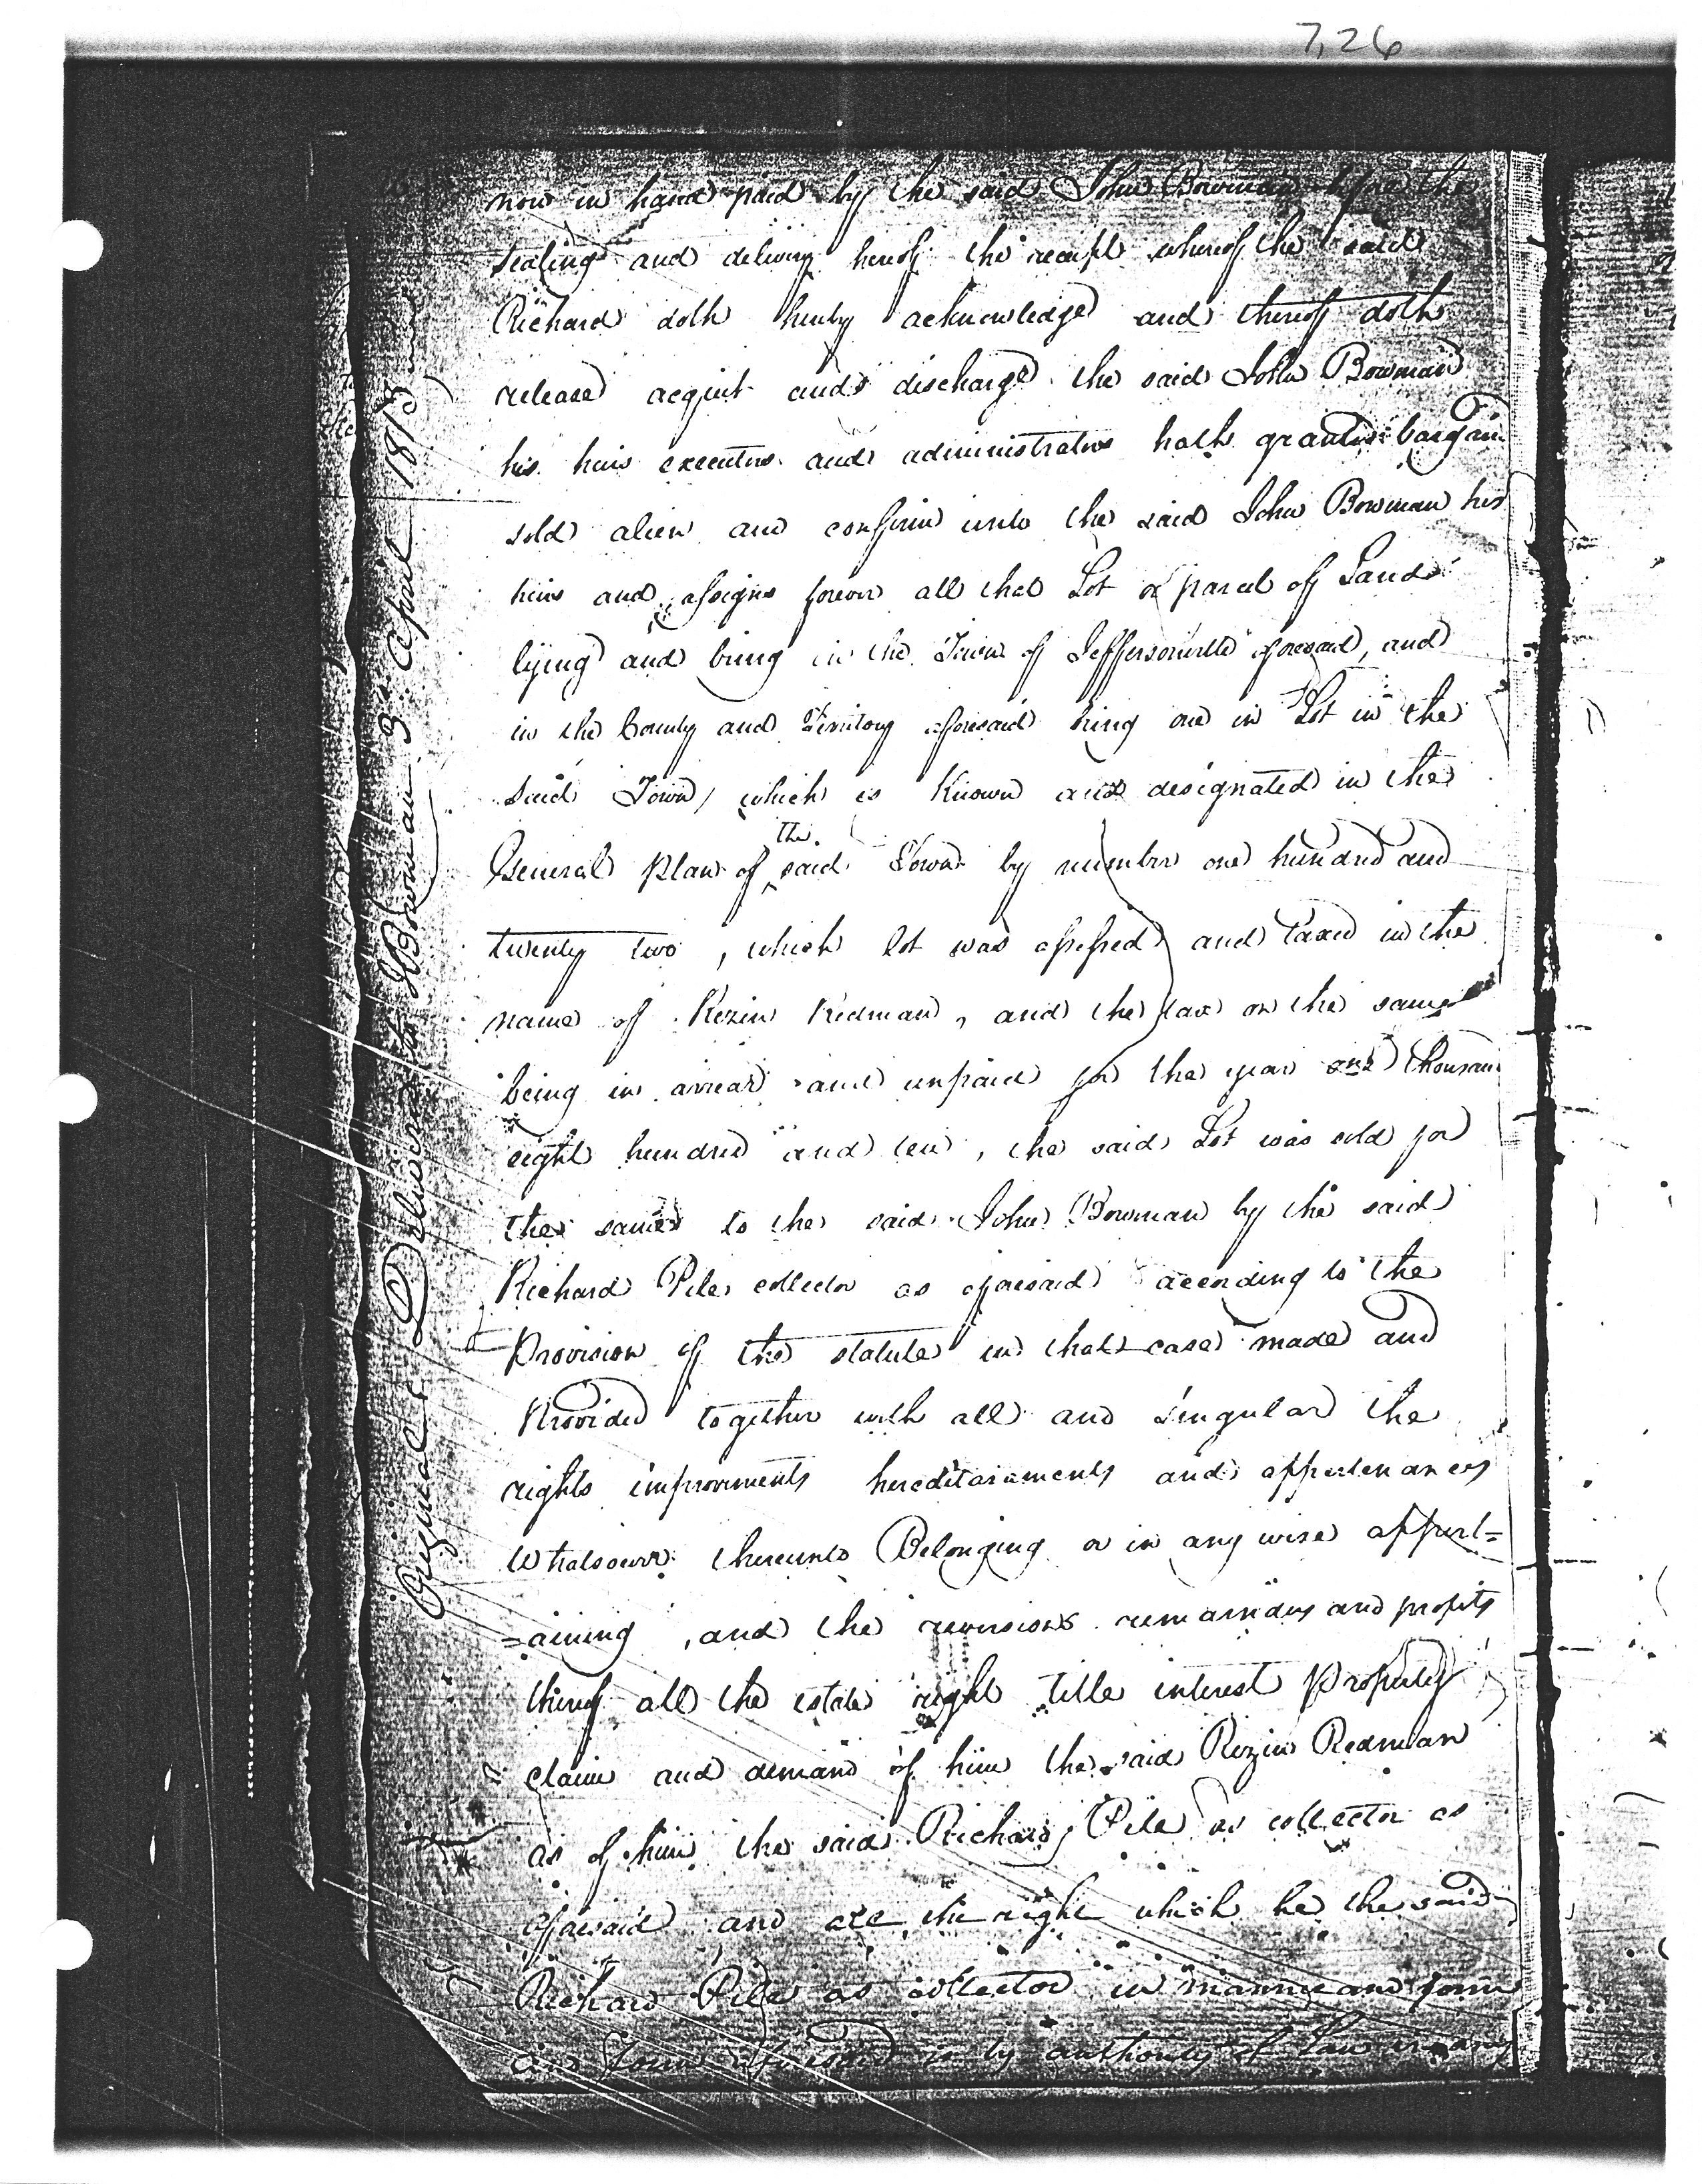 7,26
26
now in hand paid by the said John Bowman before the
sealing and delivery hereof the receipt whereof the said
Richard doth hereby acknowledge and thereof doth
release acquit and discharge the said John Bowman
his heirs executors and administrators hath granted bargain
sold alien and confirm unto the said John Bowman his
heirs and assigns forever all that Lot or parcel of Land
lying and being in the Town of Jeffersonville aforesaid, and
in the County and Territory aforesaid being one in Lot in the
said Town, which is Known and designated in the
General Plan of the said Town by number one hundred and
twenty two, which lot was assessed and taxed in the
name of Rezin Redman, and the tax on the same
being in arrear and unpaid for the year one thousand
eight hundred and ten, the said Lot was sold for
the same to the said John Bowman by the said
Richard Pile collector as aforesaid according to the
Provision of the statute in that case made and
Provided together with all and singular the
rights improvements hereditaraments and appertenances
Whatsoever thereunto Belonging or in any wise appert=
=aining, and the reversions remainders and profits
thereof all the estate right title interest Property
claim and demand of him the said Rezin Redman
as of him the said Richard Pile as collector as
aforesaid and all the right which he the said
Richard Pile as collector in manner and form
and form aforesaid is by authority of Law or any
Original Delivered to J Bowman 3d April 1813